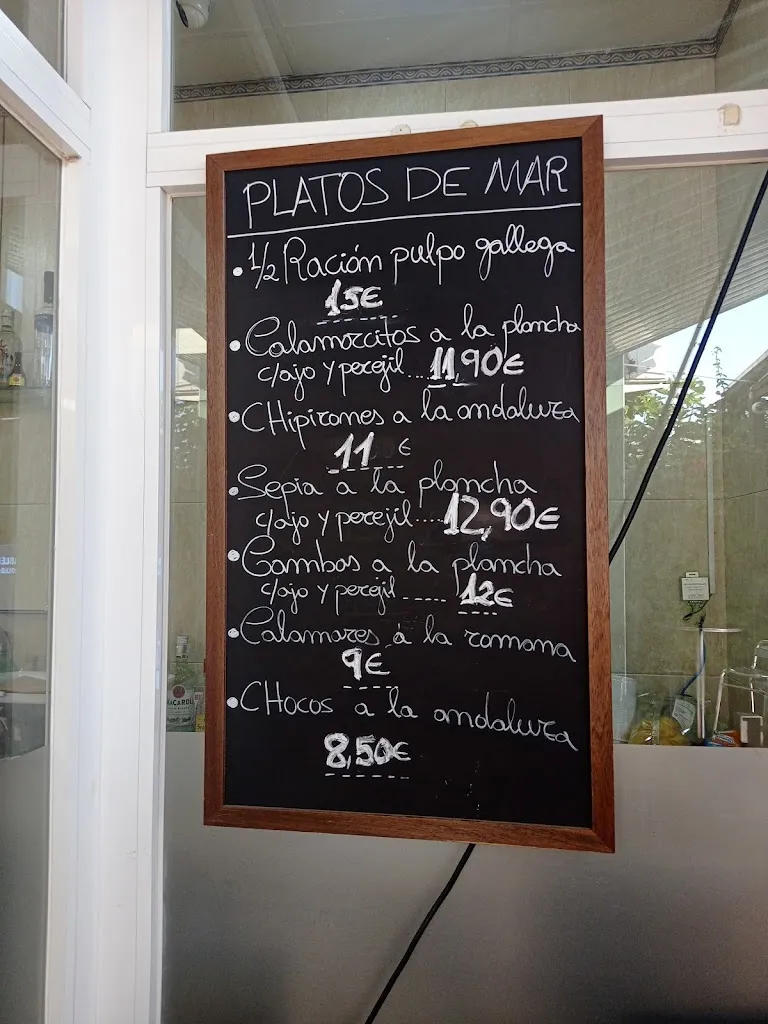 PLATOS DE MAR
• 1/2 Ración pulpo gallega
15€
• Calamarcitos a la plancha
c/ajo y perejil....11,90€
• CHipirones a la andaluza
11 €
• Sepia a la plancha
c/ajo y perejil....12,90€
• Gambas a la plancha
c/ajo y perejil ---- 12€
• Calamares a la romana
9€
• CHocos a la andaluza
8,50€
BACARDI